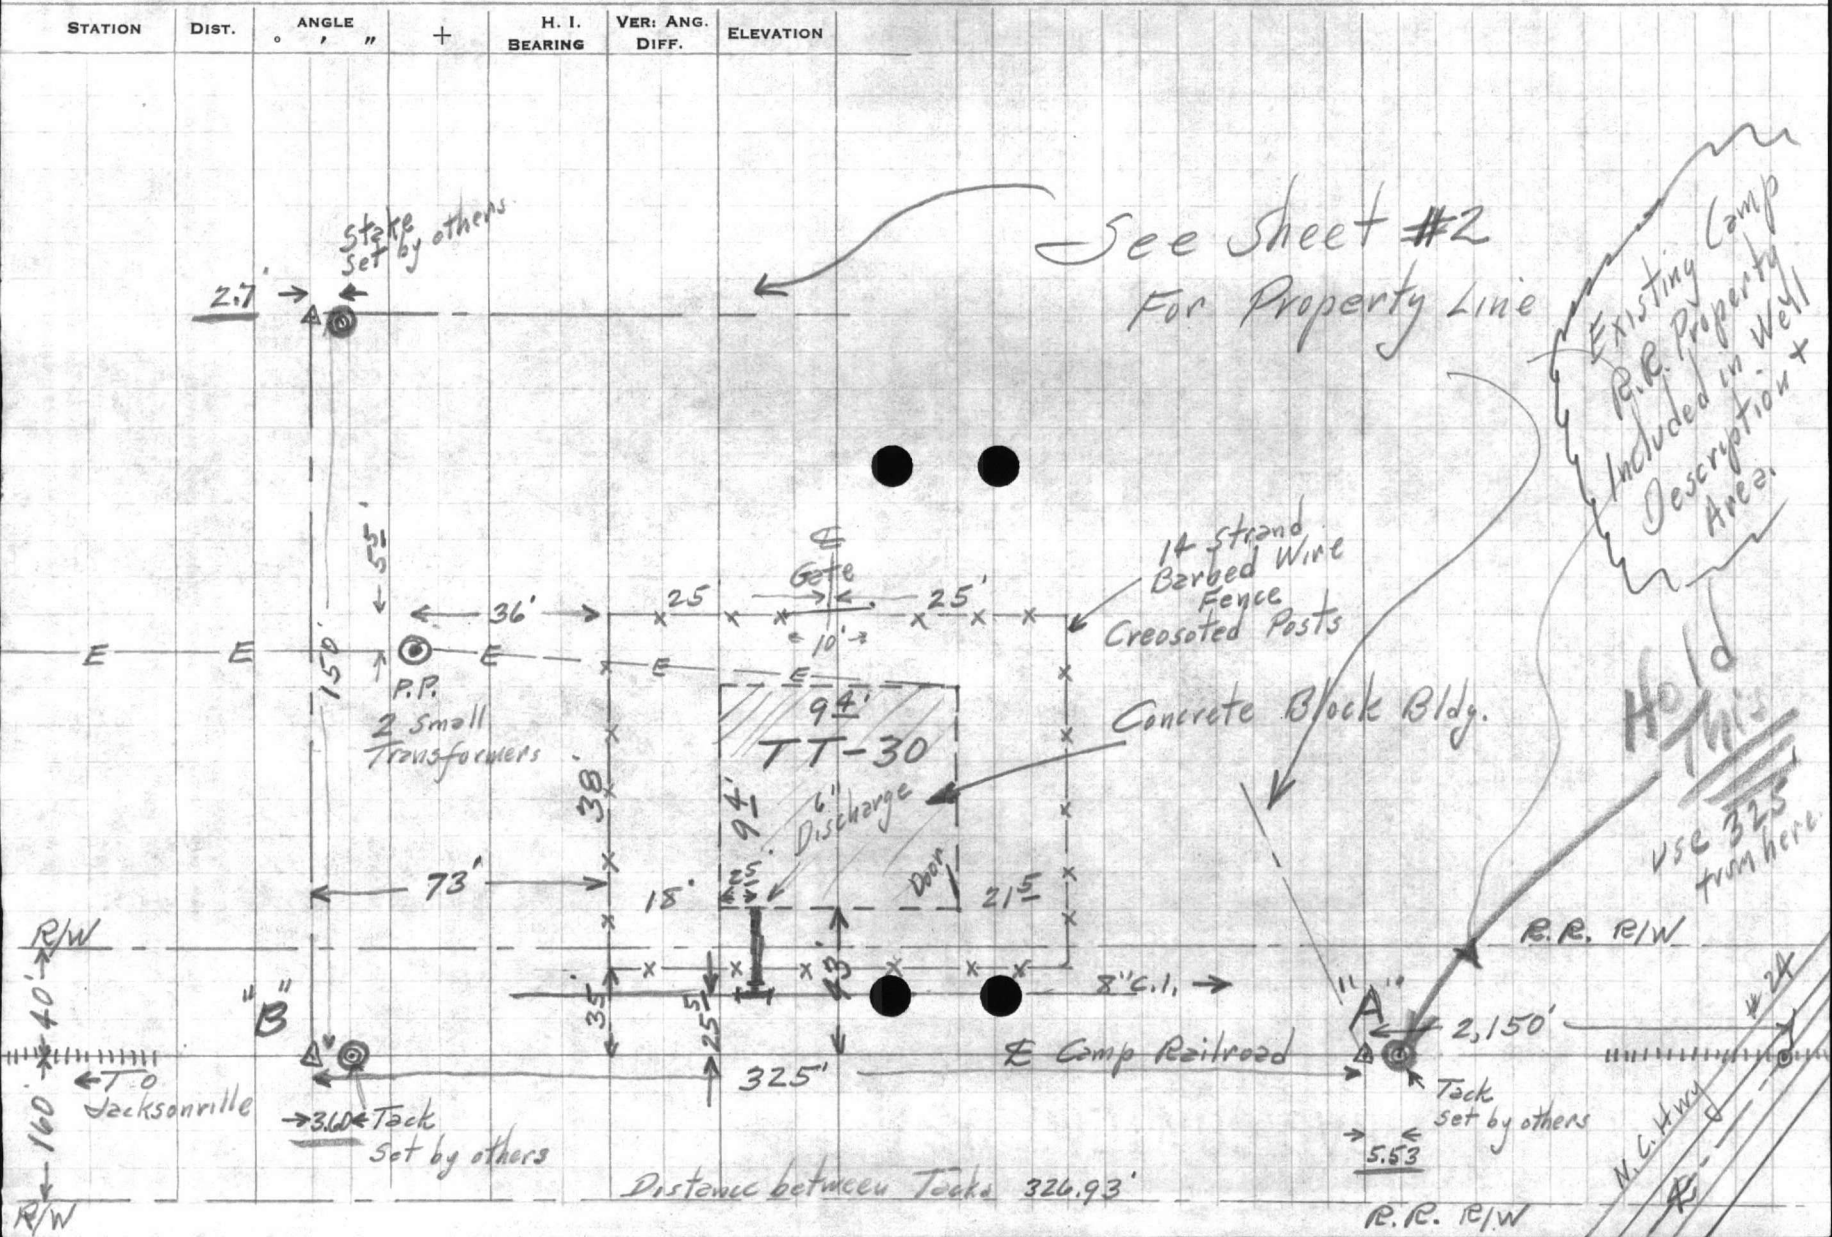 STATION DIST. ANGLE ° ' " + H. I. BEARING VER: ANG. DIFF. ELEVATION
Stake
set by others
2.7'
See Sheet #2
For Property Line
Existing Camp
R.R. Property
Included in Well
Description +
Area.
Hold
This
use 325'
from here.
55'
150'
36'
℄
Gate
25' 25'
10'
14 Strand
Barbed Wire
Fence
Creosoted Posts
E E E E E
P.P.
2 Small
Transformers
9 4'
TT-30
9 4'
6"
Discharge
Concrete Block Bldg.
38'
73'
18'
2 5
Door
21 5
R/W
R.R. R/W
40'
"B"
35'
25 5'
43'
8" C.I.
"A"
2,150'
#24
℄ Camp Railroad
325'
← To
Jacksonville
160'
3.60
Tack
Set by others
Tack
Set by others
5.53
N.C. Hwy
℄
Distance between Tacks 326.93'
R/W
R.R. R/W